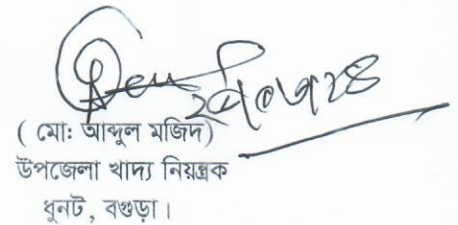 ( মো: আব্দুল মজিদ)
উপজেলা খাদ্য নিয়ন্ত্রক
ধুনট, বগুড়া।